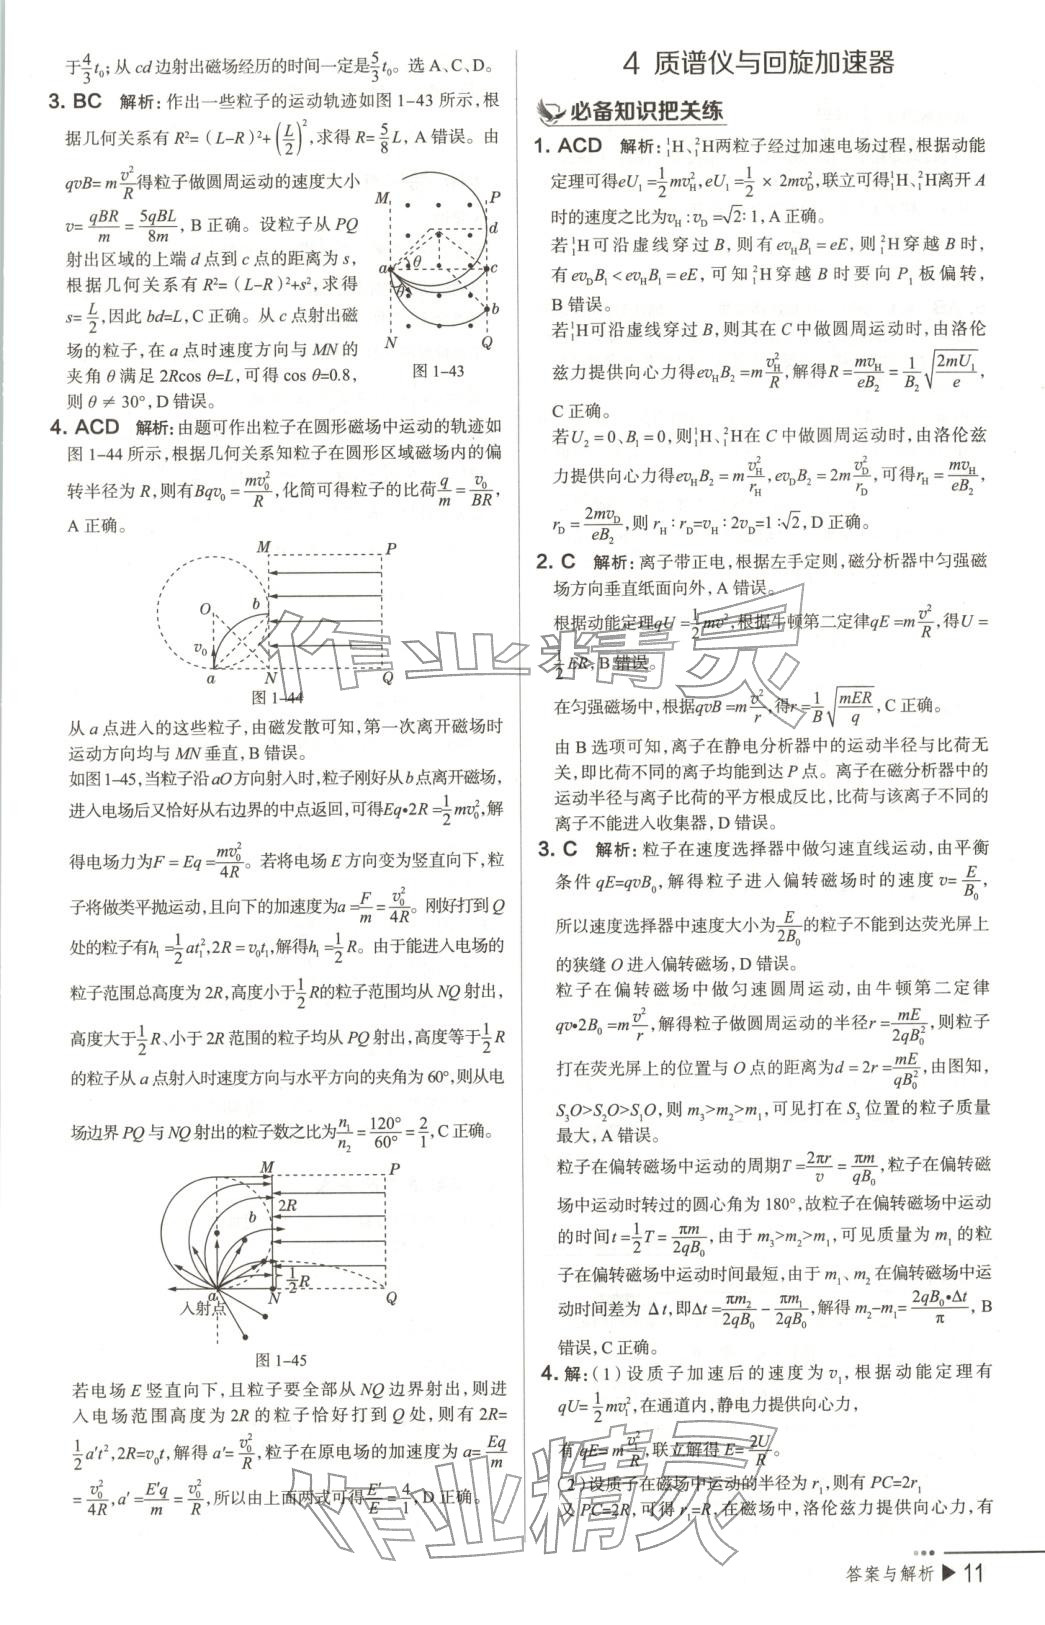 于4/3 t₀；从 cd 边射出磁场经历的时间一定是5/3 t₀。选 A、C、D。
3. BC 解析：作出一些粒子的运动轨迹如图 1-43 所示，根
据几何关系有 R²=（L-R）²+(L/2)²，求得 R=5/8 L，A 错误。由
qvB=m v²/R得粒子做圆周运动的速度大小
v=qBR/m=5qBL/8m，B 正确。设粒子从 PQ
射出区域的上端 d 点到 c 点的距离为 s，
根据几何关系有 R²=（L-R）²+s²，求得
s=L/2，因此 bd=L，C 正确。从 c 点射出磁
场的粒子，在 a 点时速度方向与 MN 的
夹角 θ 满足 2Rcos θ=L，可得 cos θ=0.8，
则 θ ≠ 30°，D 错误。
M P
d
a θ c
θ
b
N Q
图 1-43
4. ACD 解析：由题可作出粒子在圆形磁场中运动的轨迹如
图 1-44 所示，根据几何关系知粒子在圆形区域磁场内的偏
转半径为 R，则有Bqv₀=mv₀²/R，化简可得粒子的比荷q/m=v₀/BR，
A 正确。
M P
O b
v₀
a N Q
图 1-44
从 a 点进入的这些粒子，由磁发散可知，第一次离开磁场时
运动方向均与 MN 垂直，B 错误。
如图 1-45，当粒子沿 aO 方向射入时，粒子刚好从 b 点离开磁场，
进入电场后又恰好从右边界的中点返回，可得Eq•2R=1/2 mv₀²，解
得电场力为F=Eq=mv₀²/4R。若将电场 E 方向变为竖直向下，粒
子将做类平抛运动，且向下的加速度为a=F/m=v₀²/4R。刚好打到 Q
处的粒子有h₁=1/2 at₁²，2R=v₀t₁，解得h₁=1/2 R。由于能进入电场的
粒子范围总高度为 2R，高度小于1/2 R的粒子范围均从 NQ 射出，
高度大于1/2 R、小于 2R 范围的粒子均从 PQ 射出，高度等于1/2 R
的粒子从 a 点射入时速度方向与水平方向的夹角为 60°，则从电
场边界 PQ 与 NQ 射出的粒子数之比为n₁/n₂=120°/60°=2/1，C 正确。
M P
2R
b
1/2 R
a N Q
入射点
图 1-45
若电场 E 竖直向下，且粒子要全部从 NQ 边界射出，则进
入电场范围高度为 2R 的粒子恰好打到 Q 处，则有 2R=
1/2 a′t²，2R=v₀t，解得 a′=v₀²/R，粒子在原电场的加速度为 a=Eq/m
=v₀²/4R，a′=E′q/m=v₀²/R，所以由上面两式可得E′/E=4/1，D 正确。
4 质谱仪与回旋加速器
必备知识把关练
1. ACD 解析：¹₁H、²₁H两粒子经过加速电场过程，根据动能
定理可得eU₁=1/2 mv_H²，eU₁=1/2 × 2mv_D²，联立可得¹₁H、²₁H离开 A
时的速度之比为v_H∶v_D=√2∶1，A 正确。
若¹₁H可沿虚线穿过 B，则有 ev_HB₁=eE，则²₁H穿越 B 时，
有 ev_DB₁<ev_HB₁=eE，可知²₁H穿越 B 时要向 P₁ 板偏转，
B 错误。
若¹₁H可沿虚线穿过 B，则其在 C 中做圆周运动时，由洛伦
兹力提供向心力得ev_HB₂=m v_H²/R，解得R=mv_H/eB₂=1/B₂ √(2mU₁/e)，
C 正确。
若 U₂=0、B₁=0，则¹₁H、²₁H在 C 中做圆周运动时，由洛伦兹
力提供向心力得ev_HB₂=m v_H²/r_H，ev_DB₂=2m v_D²/r_D，可得r_H=mv_H/eB₂，
r_D=2mv_D/eB₂，则 r_H∶r_D=v_H∶2v_D=1∶√2，D 正确。
2. C 解析：离子带正电，根据左手定则，磁分析器中匀强磁
场方向垂直纸面向外，A 错误。
根据动能定理qU=1/2 mv²，根据牛顿第二定律qE=m v²/R，得U=
1/2 ER，B 错误。
在匀强磁场中，根据qvB=m v²/r，得r=1/B √(mER/q)，C 正确。
由 B 选项可知，离子在静电分析器中的运动半径与比荷无
关，即比荷不同的离子均能到达 P 点。离子在磁分析器中的
运动半径与离子比荷的平方根成反比，比荷与该离子不同的
离子不能进入收集器，D 错误。
3. C 解析：粒子在速度选择器中做匀速直线运动，由平衡
条件 qE=qvB₀，解得粒子进入偏转磁场时的速度 v=E/B₀，
所以速度选择器中速度大小为E/2B₀的粒子不能到达荧光屏上
的狭缝 O 进入偏转磁场，D 错误。
粒子在偏转磁场中做匀速圆周运动，由牛顿第二定律
qv•2B₀=m v²/r，解得粒子做圆周运动的半径r=mE/2qB₀²，则粒子
打在荧光屏上的位置与 O 点的距离为d=2r=mE/qB₀²，由图知，
S₃O>S₂O>S₁O，则 m₃>m₂>m₁，可见打在 S₃ 位置的粒子质量
最大，A 错误。
粒子在偏转磁场中运动的周期T=2πr/v=πm/qB₀，粒子在偏转磁
场中运动时转过的圆心角为 180°，故粒子在偏转磁场中运动
的时间t=1/2 T=πm/2qB₀，由于 m₃>m₂>m₁，可见质量为 m₁ 的粒
子在偏转磁场中运动时间最短，由于 m₁、m₂ 在偏转磁场中运
动时间差为 Δt，即Δt=πm₂/2qB₀-πm₁/2qB₀，解得 m₂-m₁=2qB₀•Δt/π，B
错误，C 正确。
4. 解：（1）设质子加速后的速度为 v₁，根据动能定理有
qU=1/2 mv₁²，在通道内，静电力提供向心力，
有 qE=m v₁²/R，联立解得 E=2U/R。
（2）设质子在磁场中运动的半径为 r₁，则有 PC=2r₁
又 PC=2R，可得 r₁=R，在磁场中，洛伦兹力提供向心力，有
答案与解析 ▶ 11
作业精灵
作业精灵